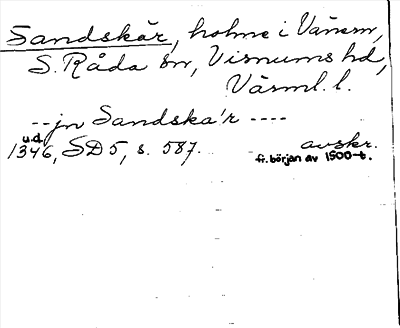 Sandskär, holme i Vänern,
S. Råda sn, Visnums hd,
Värml. l.
-- jn Sandska'r ----
u.d.
1346, SD 5, s. 587. avskr.
fr. början av 1500-t.